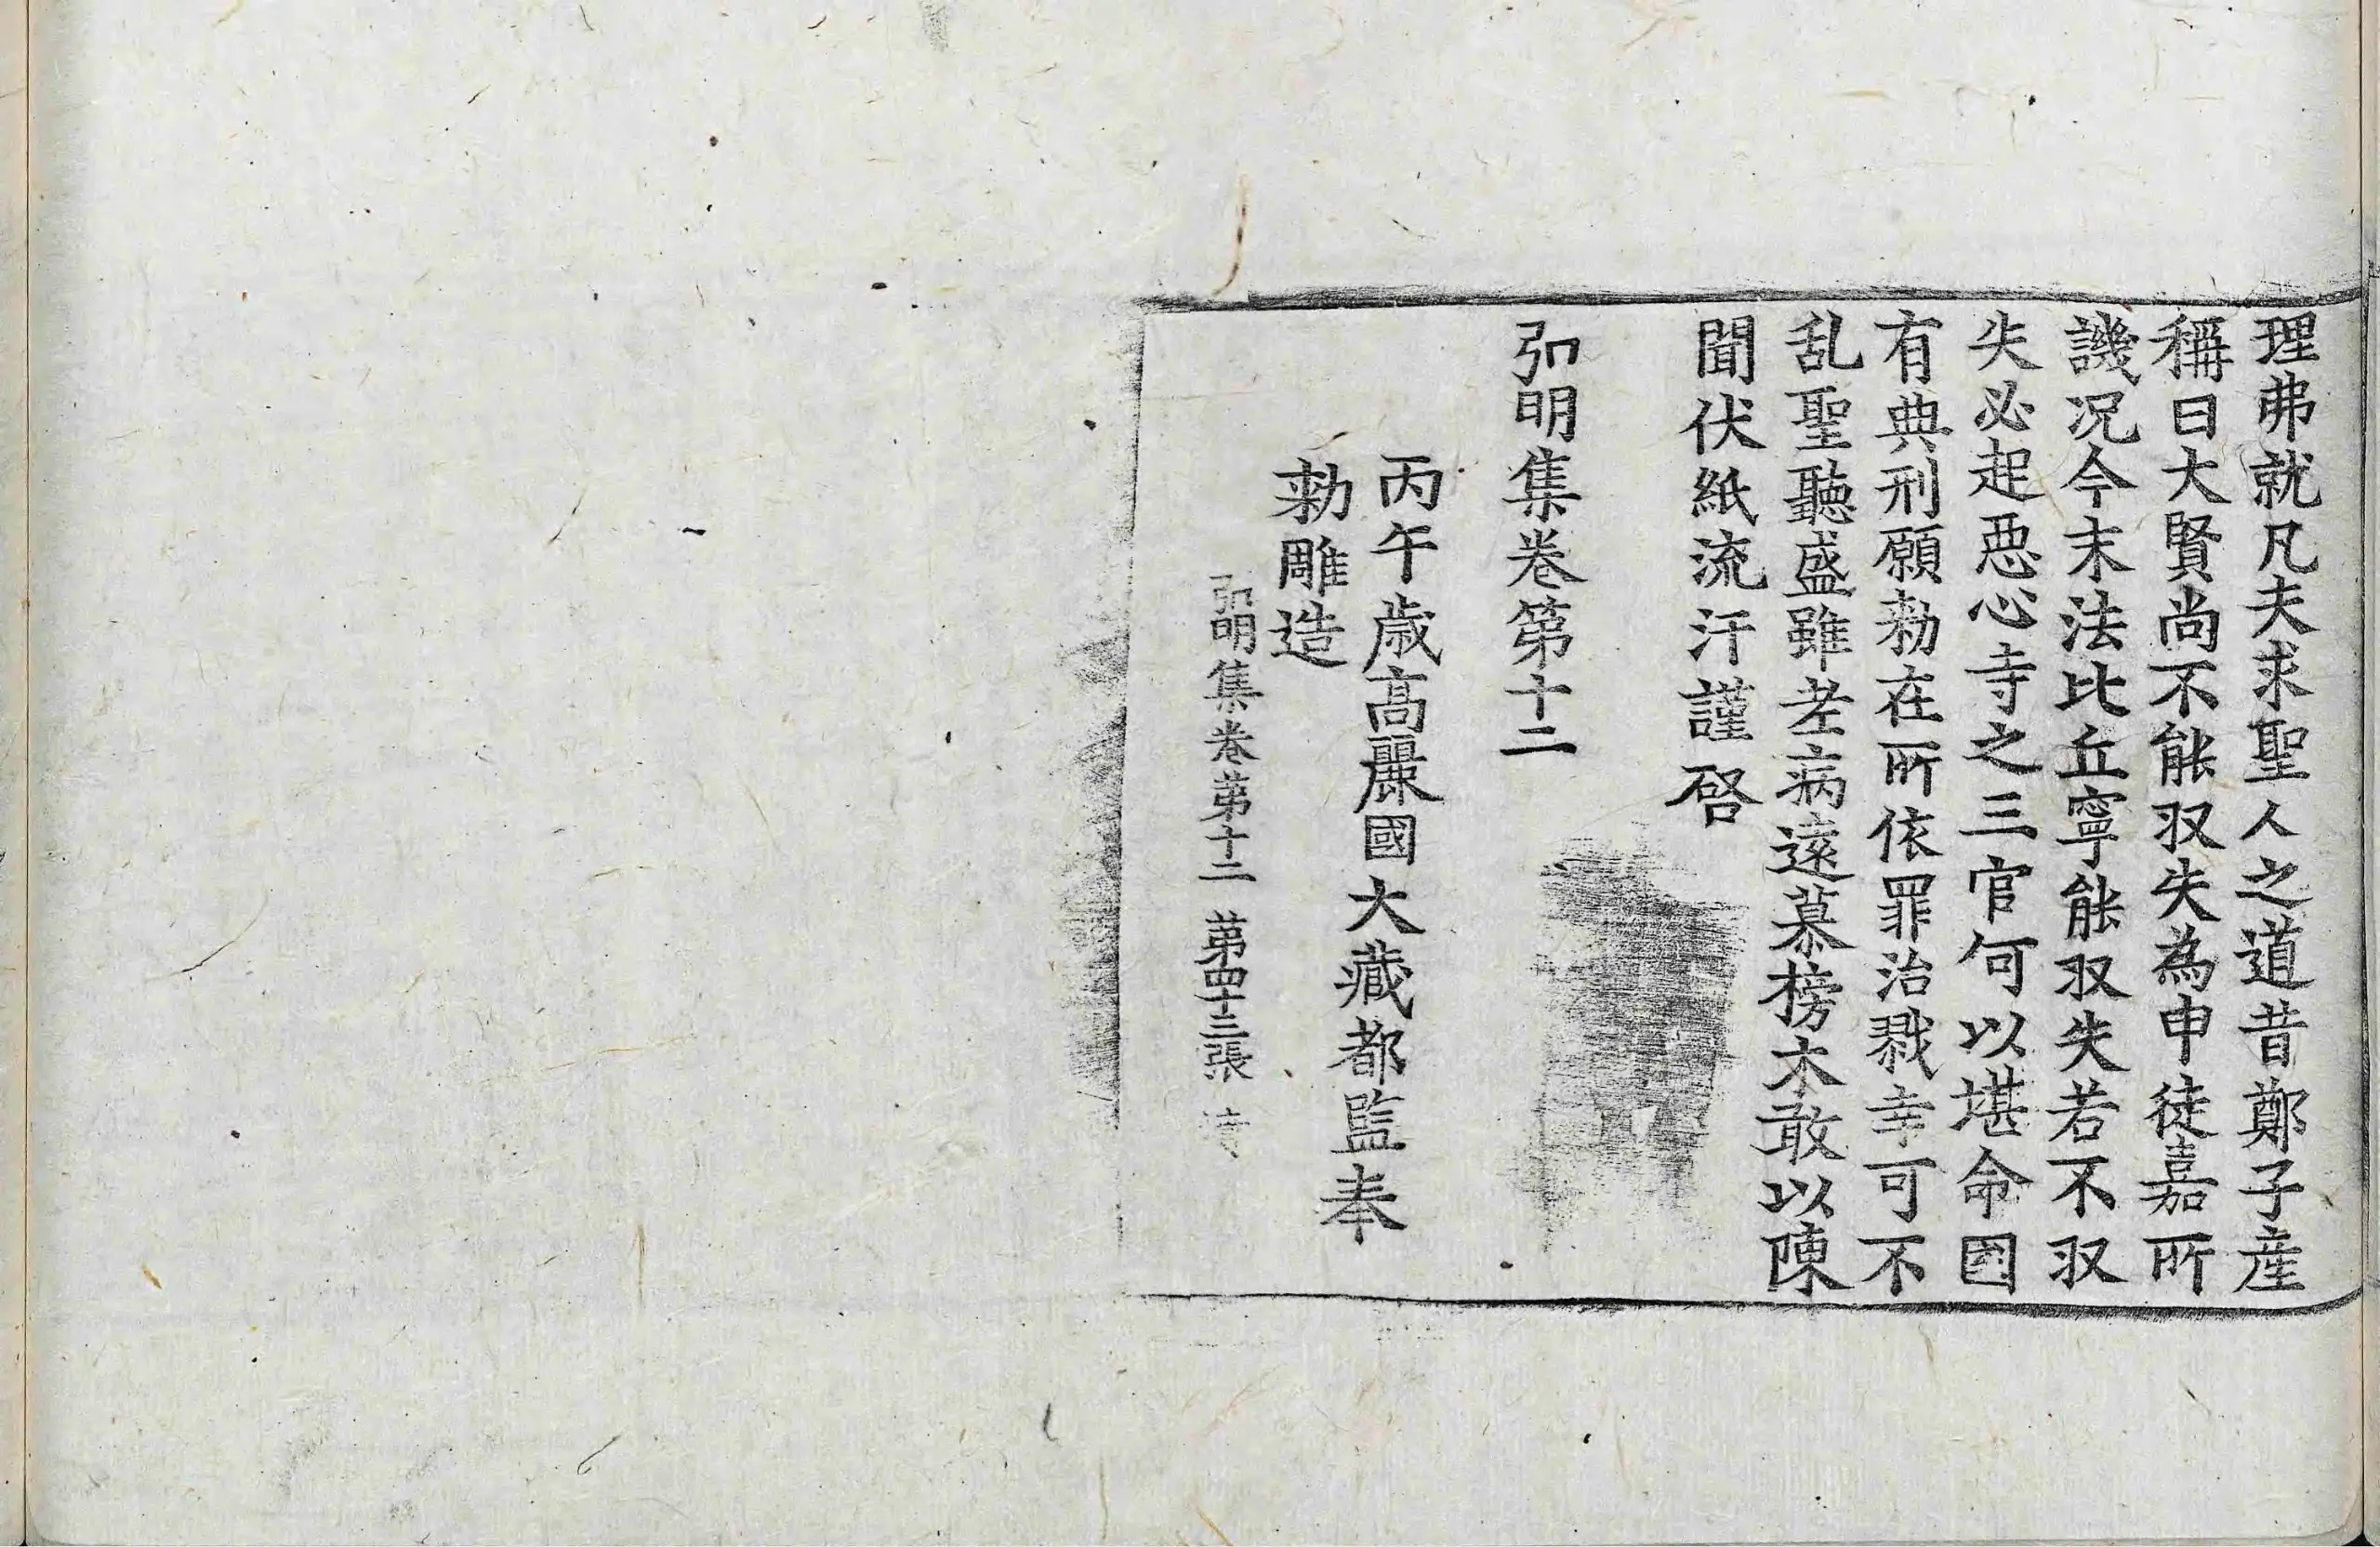 理弗就凡夫求聖人之道昔鄭子産
稱曰大賢尚不能収失為申徒嘉所
譏况今末法比丘寧能収失若不収
失必起惡心寺之三官何以堪命國
有典刑願勑在所依罪治戮幸可不
乱聖聽盛雖老病遠慕榜木敢以陳
聞伏紙流汗謹啓
弘明集卷第十二
丙午歳高麗國大藏都監奉
勑雕造
弘明集卷第十二 第四十三張